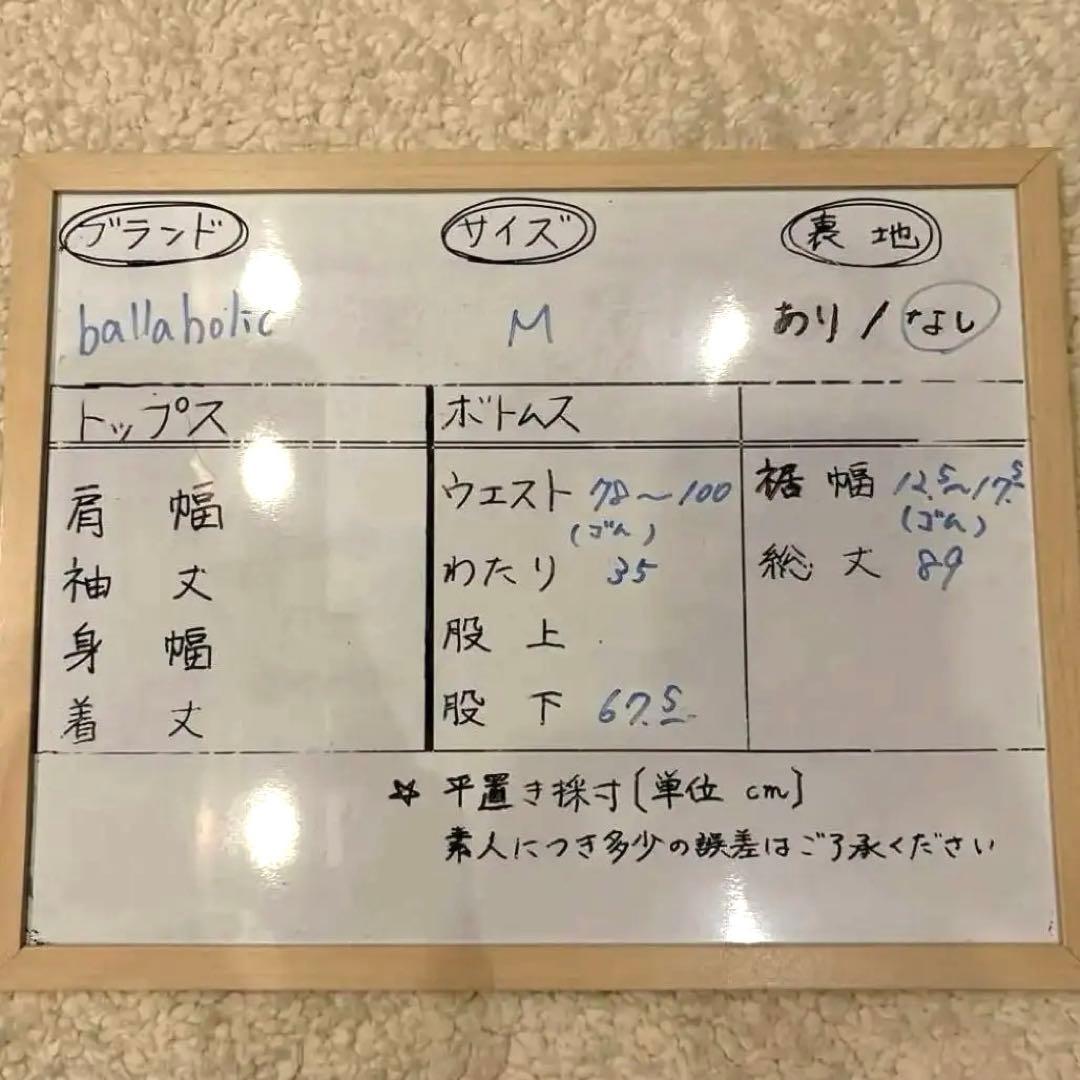 ブランド サイズ 裏地
ballaholic M あり/なし
トップス
肩幅
袖丈
身幅
着丈
ボトムス
ウエスト 78~100
(ゴム)
わたり 35
股上
股下 67.5
裾幅 12.5~17.5
(ゴム)
総丈 89
☆ 平置き採寸[単位 cm]
素人につき多少の誤差はご了承ください